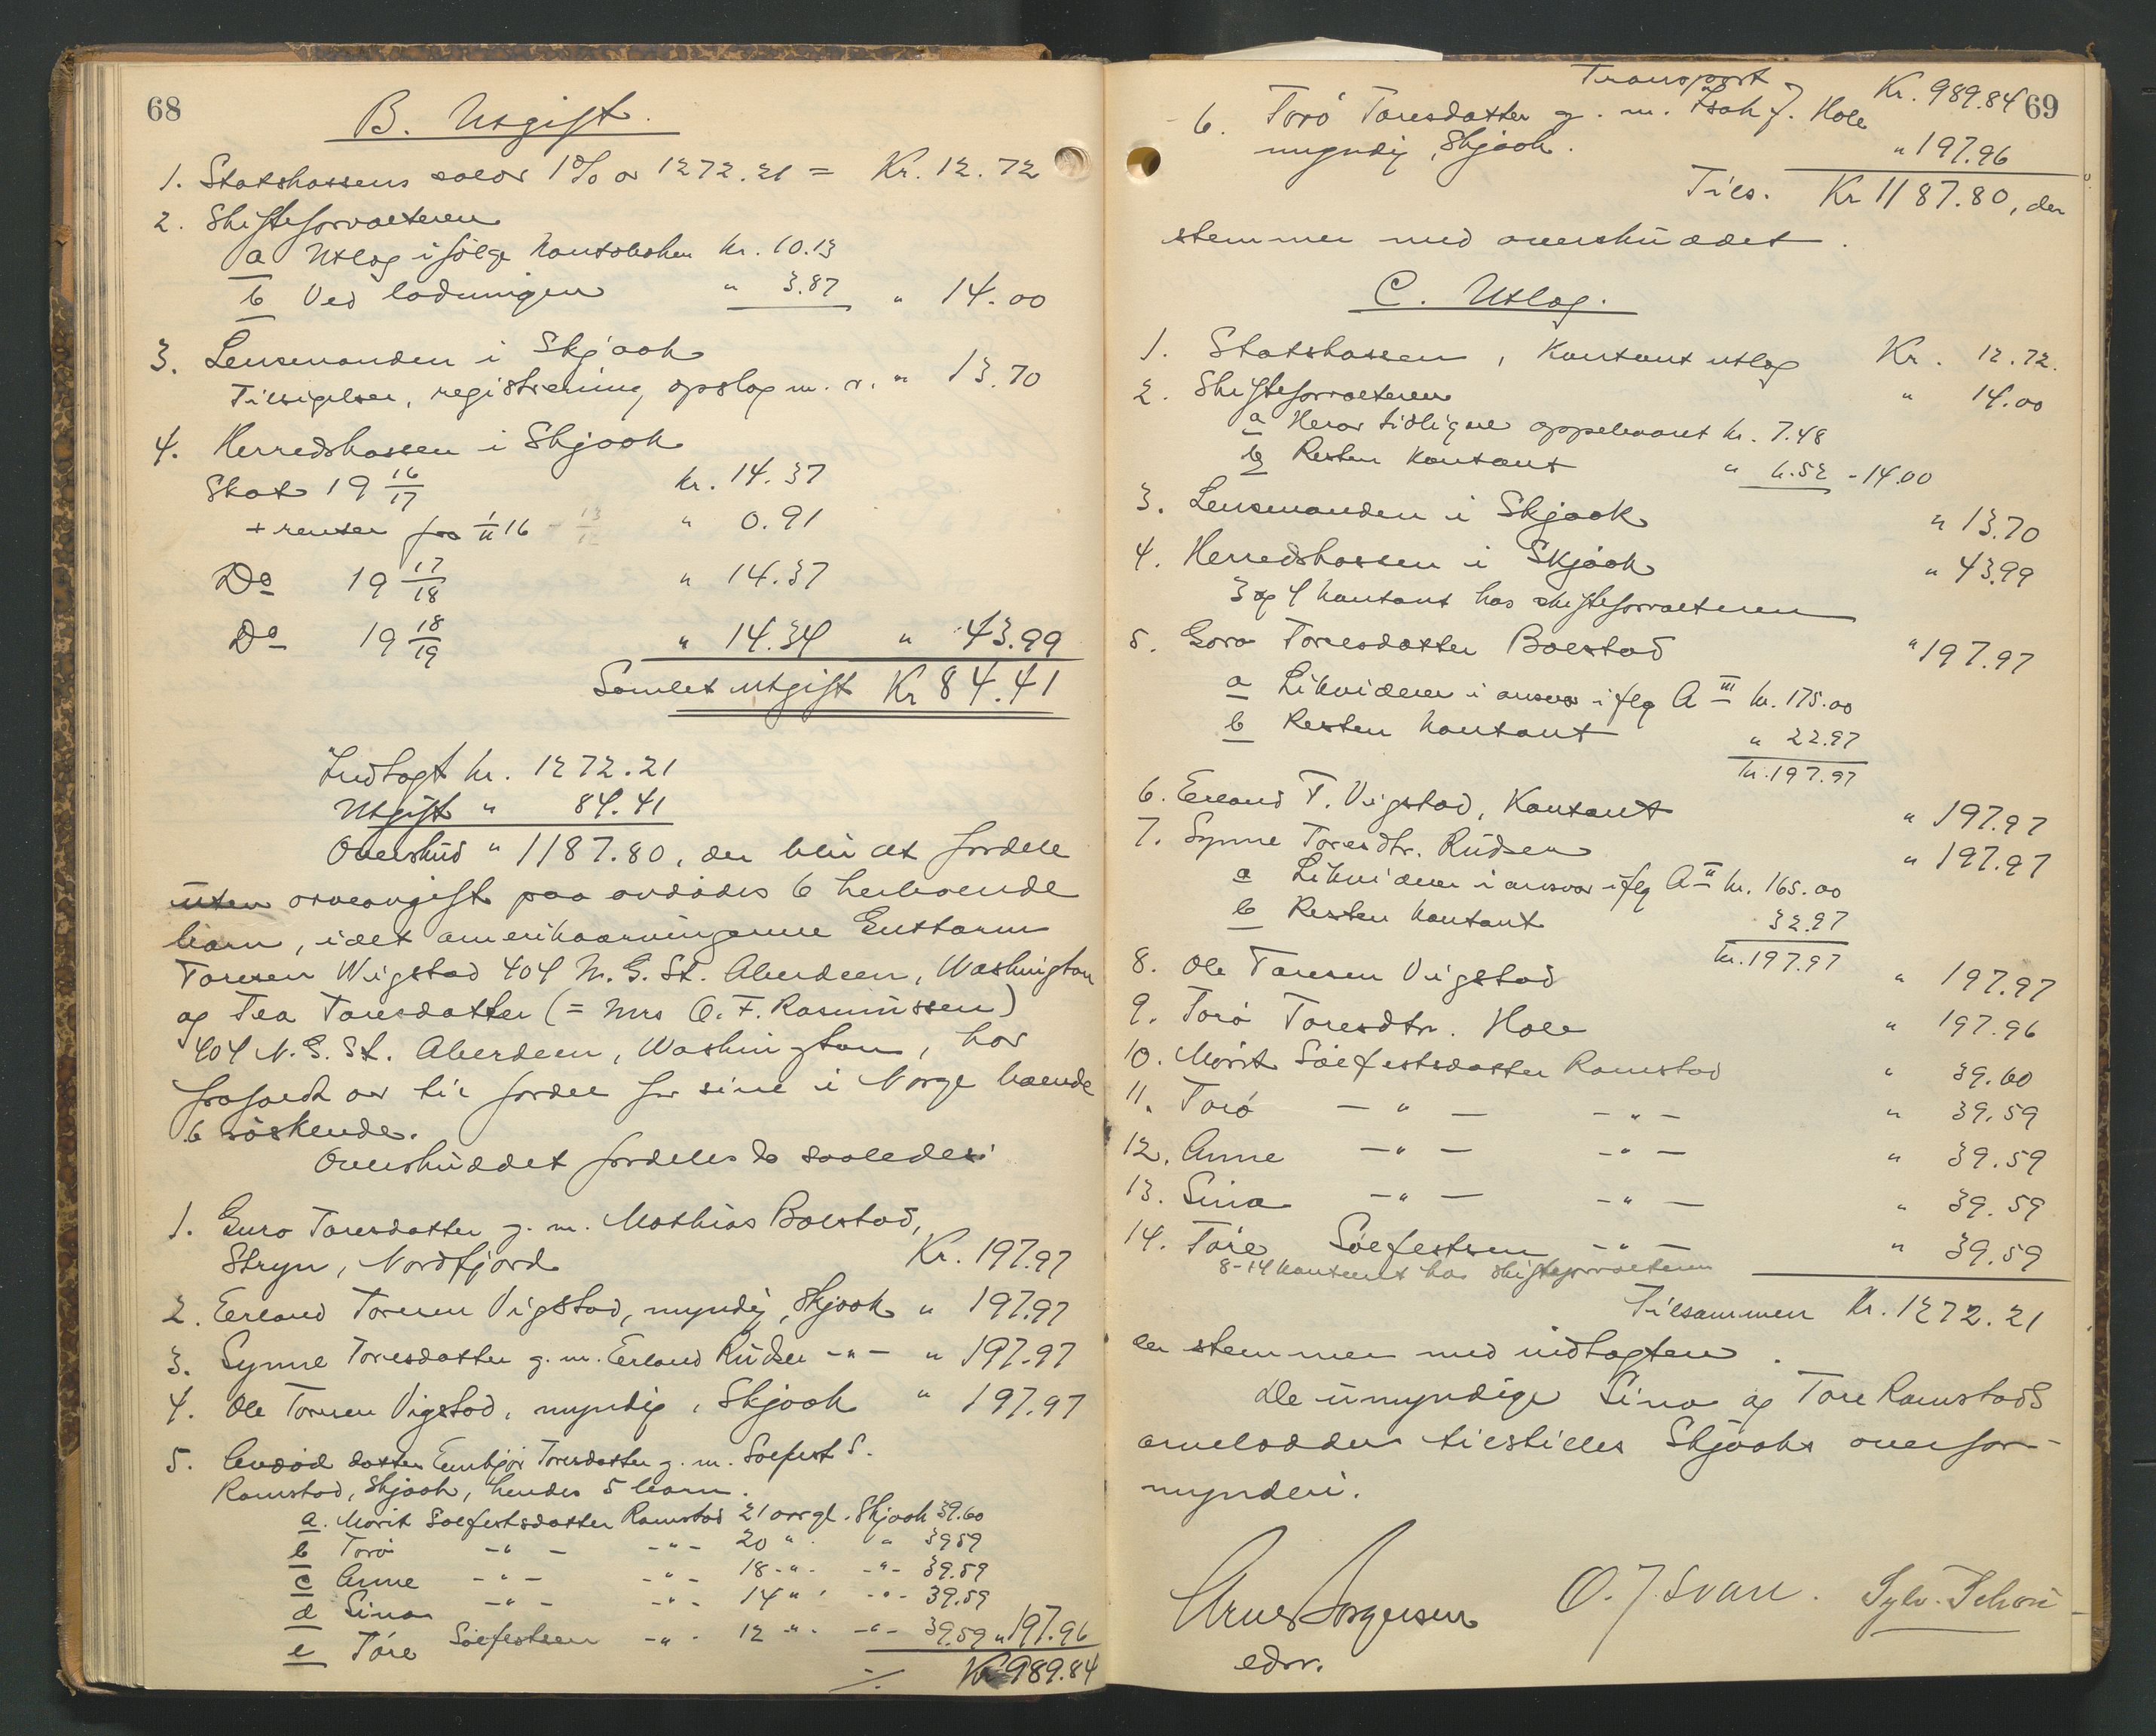 68
B. Utgift.
1. Statskassens salær 1% av 1272.21 = Kr. 12.72
2. Skifteforvalteren
a Utlæg ifølge kontoboken kr. 10.13
b Ved lodningen " 3.87 " 14.00
3. Lensmanden i Skjaak
Tilsigelser, registrering, opslag m. v. " 13.70
4. Herredskassen i Skjaak
Skat 19 16/17 kr. 14.37
+ renter fra 1/11 16 - " 0.91
Do 19 17/18 " 14.37
Do 19 18/19 " 14.34 " 43.99
Samlet utgift Kr 84.41
Indtægt kr. 1272.21
Utgift " 84.41
Overskud " 1187.80, der blir at fordele
uten arveavgift paa avdødes 6 herboende
barn, idet amerikaarvingerne Guttorm
Toresen Wigstad 404 N. G. St. Aberdeen, Washington
og Tea Toresdatter (= Mrs O. F. Rasmussen)
404 N. G. St. Aberdeen, Washington, har
frafaldt arv til fordel for sine i Norge boende
6 søskende.
Overskuddet fordeles da saaledes:
1. Guro Toresdatter g. m. Mathias Bolstad,
Stryn, Nordfjord Kr. 197.97
2. Erland Toresen Vigstad, myndig, Skjaak " 197.97
3. Synne Toresdatter g. m. Erland Rudsen -"- " 197.97
4. Ole Toresen Vigstad, myndig, Skjaak " 197.97
5. Avdød datter Embjør Toresdatter g. m. Solfest S.
Ramstad, Skjaak, hendes 5 barn.
a. Marit Solfestsdatter Ramstad 21 aar gl. Skjaak 39.60
b Torø -"- -"- 20 " " 39.59
c Anne -"- -"- 18 -"- -"- 39.59
d Sina -"- -"- 14 " -"- 39.59
e Tore Solfestsen -"- 12 -"- -"- 39.59 " 197.96
./. Kr 989.84
Transport Kr. 989.84 69
6. Torø Toresdatter g. m. Isak J. Hole
myndig, Skjaak. " 197.96
Tils. Kr 1187.80, der
stemmer med overskuddet.
C. Utlæg.
1. Statskassen, Kontant utlæg Kr. 12.72.
2. Skifteforvalteren " 14.00
a Herav tidligere oppebaaret kr. 7.48
b Resten kontant " 6.52 - 14.00
3. Lensmanden i Skjaak " 13.70
4. Herredskassen i Skjaak " 43.99
3 og 4 kontant hos skifteforvalteren
5. Goro Toresdatter Bolstad " 197.97
a Likviderer i ansvar iflg A III kr. 175.00
b Resten kontant " 22.97
kr. 197.97
6. Erland T. Vigstad, Kontant " 197.97
7. Synne Toresdtr. Rudsen " 197.97
a Likviderer i ansvar iflg A II kr. 165.00
b Resten kontant 32.97
kr. 197.97
8. Ole Toresen Vigstad " 197.97
9. Torø Toresdtr. Hole " 197.96
10. Marit Solfestsdatter Ramstad " 39.60
11. Torø -"- -"- " 39.59
12. Anne -"- -"- " 39.59
13. Sina -"- -"- " 39.59
14. Tore Solfestsen -"- " 39.59
8-14 kontant hos skifteforvalteren
Tilsammen Kr. 1272.21
der stemmer med indtægten.
De umyndige Sina og Tore Ramstads
arvelodder tilstilles Skjaaks overfor-
mynderi.
Arne Jørgensen O. J. Svare. Sylv. Schou
edsv.